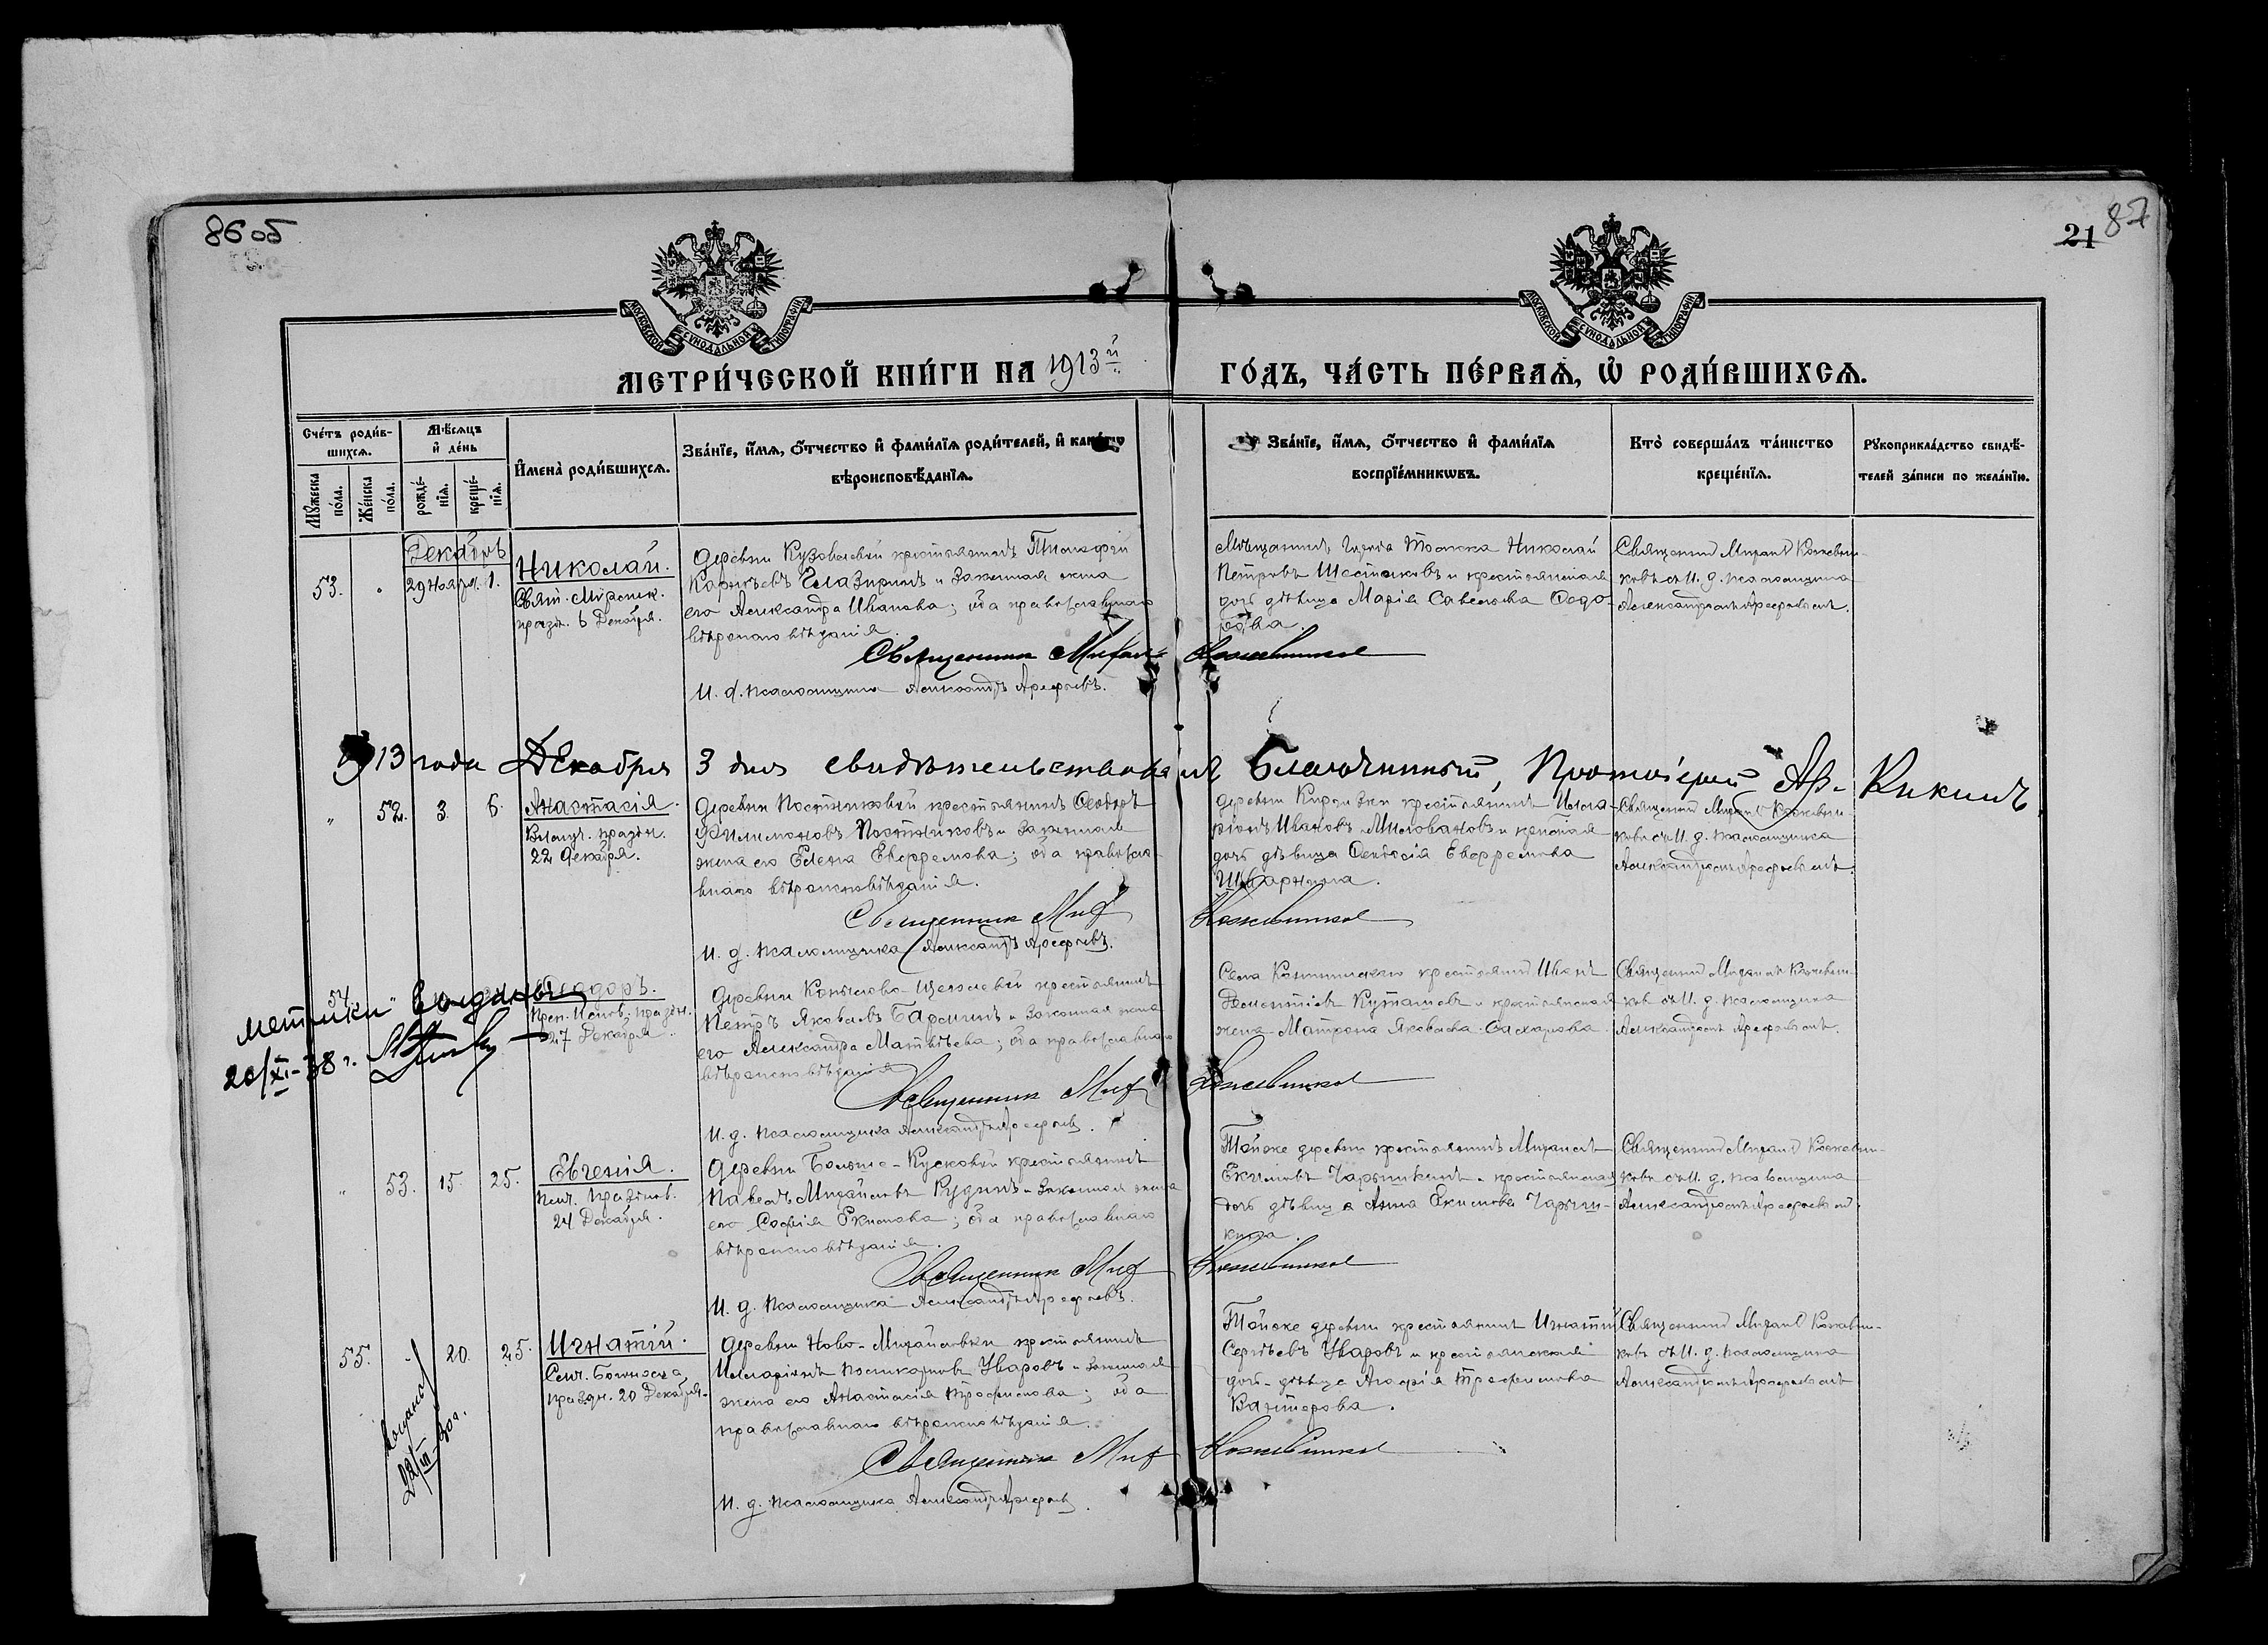 86 об
21 87
МОСКОВСКОЙ СѴНОДАЛЬНОЙ ТИПОГРАФІИ
МОСКОВСКОЙ СѴНОДАЛЬНОЙ ТИПОГРАФІИ
МЕТРИ́ЧЕСКОЙ КНИ́ГИ НА 1913й ГО́ДЪ, ЧА́СТЬ ПЕ́РВАѦ, Ѡ҆ РОДИ́ВШИХСѦ.
Сче́тъ роди́в-
шихсѧ.
Мѣ́сѧцъ
и҆ де́нь
Мꙋ́жеска
по́ла.
Же́нска
по́ла.
рожде́-
нїѧ.
креще́-
нїѧ.
И҆мена̀ роди́вшихсѧ.
Зва́нїе, и҆́мѧ, ѻ҆́тчество и҆ фами́лїѧ роди́телей, и҆ како́гѡ
вѣроисповѣ́данїѧ.
Зва́нїе, и҆́мѧ, ѻ҆́тчество и҆ фами́лїѧ
воспрїе́мникѡвъ.
Кто̀ соверша́лъ та́инство
креще́нїѧ.
Рꙋкоприкла́дство свидѣ́-
телей за́писи по жела́нїю.
Декабрь
53. " 29 Ноября. 1.
Николай.
Свят. Мирлик.
праздн. 6 Декабря.
Деревни Кузовлевой крестьянинъ Тимофей
Карнѣевъ Глазиринъ и законная жена
его Александра Иванова; оба православнаго
вѣроисповѣданія.
Священникъ Михаилъ Кожевников
И. д. псаломщика Александръ Арефьевъ.
Мѣщанинъ города Томска Николай
Петровъ Шестаковъ и крестьянская
дочь дѣвица Марія Савельева Федо-
рова.
Священник Михаил Кожевни-
ковъ съ И. д. псаломщика
Александромъ Арефьевымъ.
1913 года Декабря 3 дня свидѣтельствовалъ Благочинный, Протоіерей Ар. Кикинъ
" 52. 3. 6.
Анастасія.
Великомуч. праздн.
22 Декабря.
Деревни Постниковой крестьянинъ Ѳеодоръ
Филимоновъ Постниковъ и законная
жена его Елена Евфремова; оба правосла-
внаго вѣроисповѣданія.
Священник Мих Кожевников
И. д. псаломщика Александръ Арефьевъ.
Деревни Киргизки крестьянинъ Илла-
ріонъ Ивановъ Миловановъ и крестьян.
дочь дѣвица Ѳеодосія Евфремова
Священник Михаил Кожевни-
ковъ съ И. д. псаломщика
Александромъ Арефьевымъ.
54. "
метрики выданы
20/XI-38 г.
Ѳеодоръ.
Преп. Испов. праздн.
27 Декабря.
Деревни Копылово-Щегловой крестьянинъ
Петръ Яковлевъ и законная жена
его Александра Матвѣева; оба православнаго
вѣроисповѣданія
Священник Мих Кожевников
И. д. псаломщика Александръ Арефьев.
Села крестьянинъ Иванъ
и крестьянская
жена Матрона Яковлева Сахарова.
Священник Михаил Кожевни-
ков съ И. д. псаломщика
Александромъ Арефьевымъ.
" 53. 15. 25.
Евгенія.
Муч. празднов.
24 Декабря.
Деревни Больше-Кусковой крестьянинъ
Павелъ Михайловъ Кудинъ и законная жена
его Софія Екимова; оба православнаго
вѣроисповѣданія.
Священник Мих Кожевников
И. д. псаломщика Александръ Арефьевъ.
Тойже деревни крестьянинъ Михаилъ
Екимовъ Чарышкинъ и крестьянская
дочь дѣвица Анна Екимова Чарыш-
кина.
Священник Михаил Кожевни-
ковъ съ И. д. псаломщика
Александромъ Арефьевымъ.
55. " 20. 25.
22/III-30г.
Игнатій.
Свщ. Богоносца
праздн. 20 Декабря.
Деревни Ново-Михайловки крестьянинъ
Илларіонъ Поликарповъ Уваровъ и законная
жена его Анастасія Трофимова; оба
православнаго вѣроисповѣданія.
Священник Мих Кожевников
И. д. псаломщика Александръ Арефьев.
Тойже деревни крестьянинъ Игнатій
Сергѣевъ Уваровъ и крестьянская
дочь дѣвица Агафія Трофимова
Вахтерова.
Священник Михаил Кожевни-
ковъ съ И. д. псаломщика
Александромъ Арефьевымъ